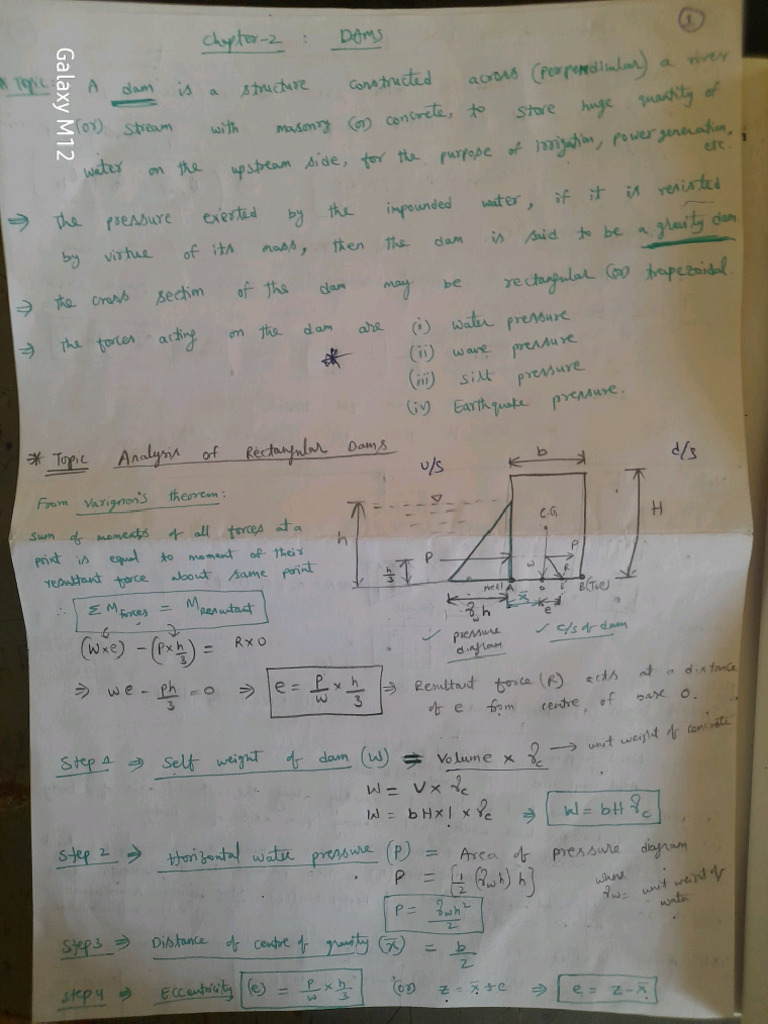 1
Chapter-2 : DAMS
* Topic: A dam is a structure constructed across (perpendicular) a river
(or) stream with masonry (or) concrete, to store huge quantity of
water on the upstream side, for the purpose of irrigation, power generation, etc.
⇒ The pressure exerted by the impounded water, if it is resisted
by virtue of its mass, then the dam is said to be a gravity dam
⇒ the cross section of the dam may be rectangular (or) trapezoidal.
⇒ The forces acting on the dam are (i) water pressure
(ii) wave pressure
(iii) silt pressure
(iv) Earthquake pressure.
* Topic Analysis of Rectangular Dams
From Varignon's theorem:
sum of moments of all forces at a
point is equal to moment of their
resultant force about same point
∴ ΣM forces = M resultant
(W×e) − (P×h/3) = R×0
⇒ we − ph/3 = 0 ⇒ e = P/W × h/3 ⇒ Resultant force (R) acts at a distance
of e from centre of base O.
u/s
d/s
b
h
H
C.G
P
h/3
P
W
R
Heel A
O
B (Toe)
γw h
x̄
e
✓ pressure diagram
✓ c/s of dam
Step 1 ⇒ Self weight of dam (W) = Volume × γc → unit weight of concrete
W = V × γc
W = bH×1 × γc ⇒ W = bH γc
Step 2 ⇒ Horizontal water pressure (P) = Area of pressure diagram
P = [1/2 (γwh) h]
where γw = unit weight of water
P = γwh²/2
Step 3 ⇒ Distance of centre of gravity (x̄) = b/2
Step 4 ⇒ Eccentricity (e) = P/W × h/3 (or) z = x̄+e ⇒ e = z−x̄
Galaxy M12